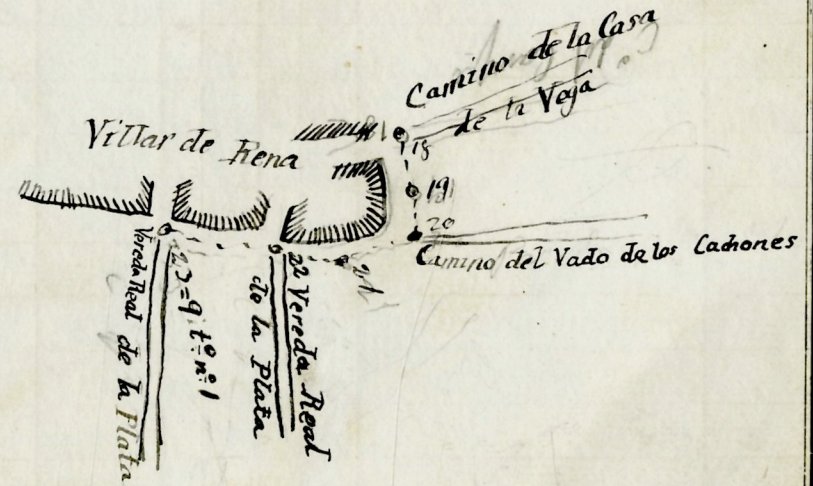 Camino de la Casa
de la Vega
Villar de Rena
18
19
20
Camino del Vado de los Cachones
21
22 Vereda Real
de la Plata
23=9 tº nº 1
Vereda Real de la Plata